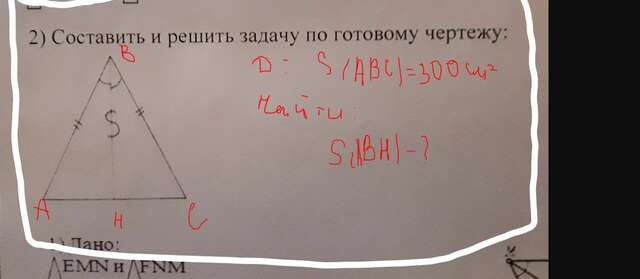 2) Составить и решить задачу по готовому чертежу:
B
D: S(ABC)=300см²
Найти:
S
S(ABH)-?
A H C
1) Дано:
△EMN и △FNM